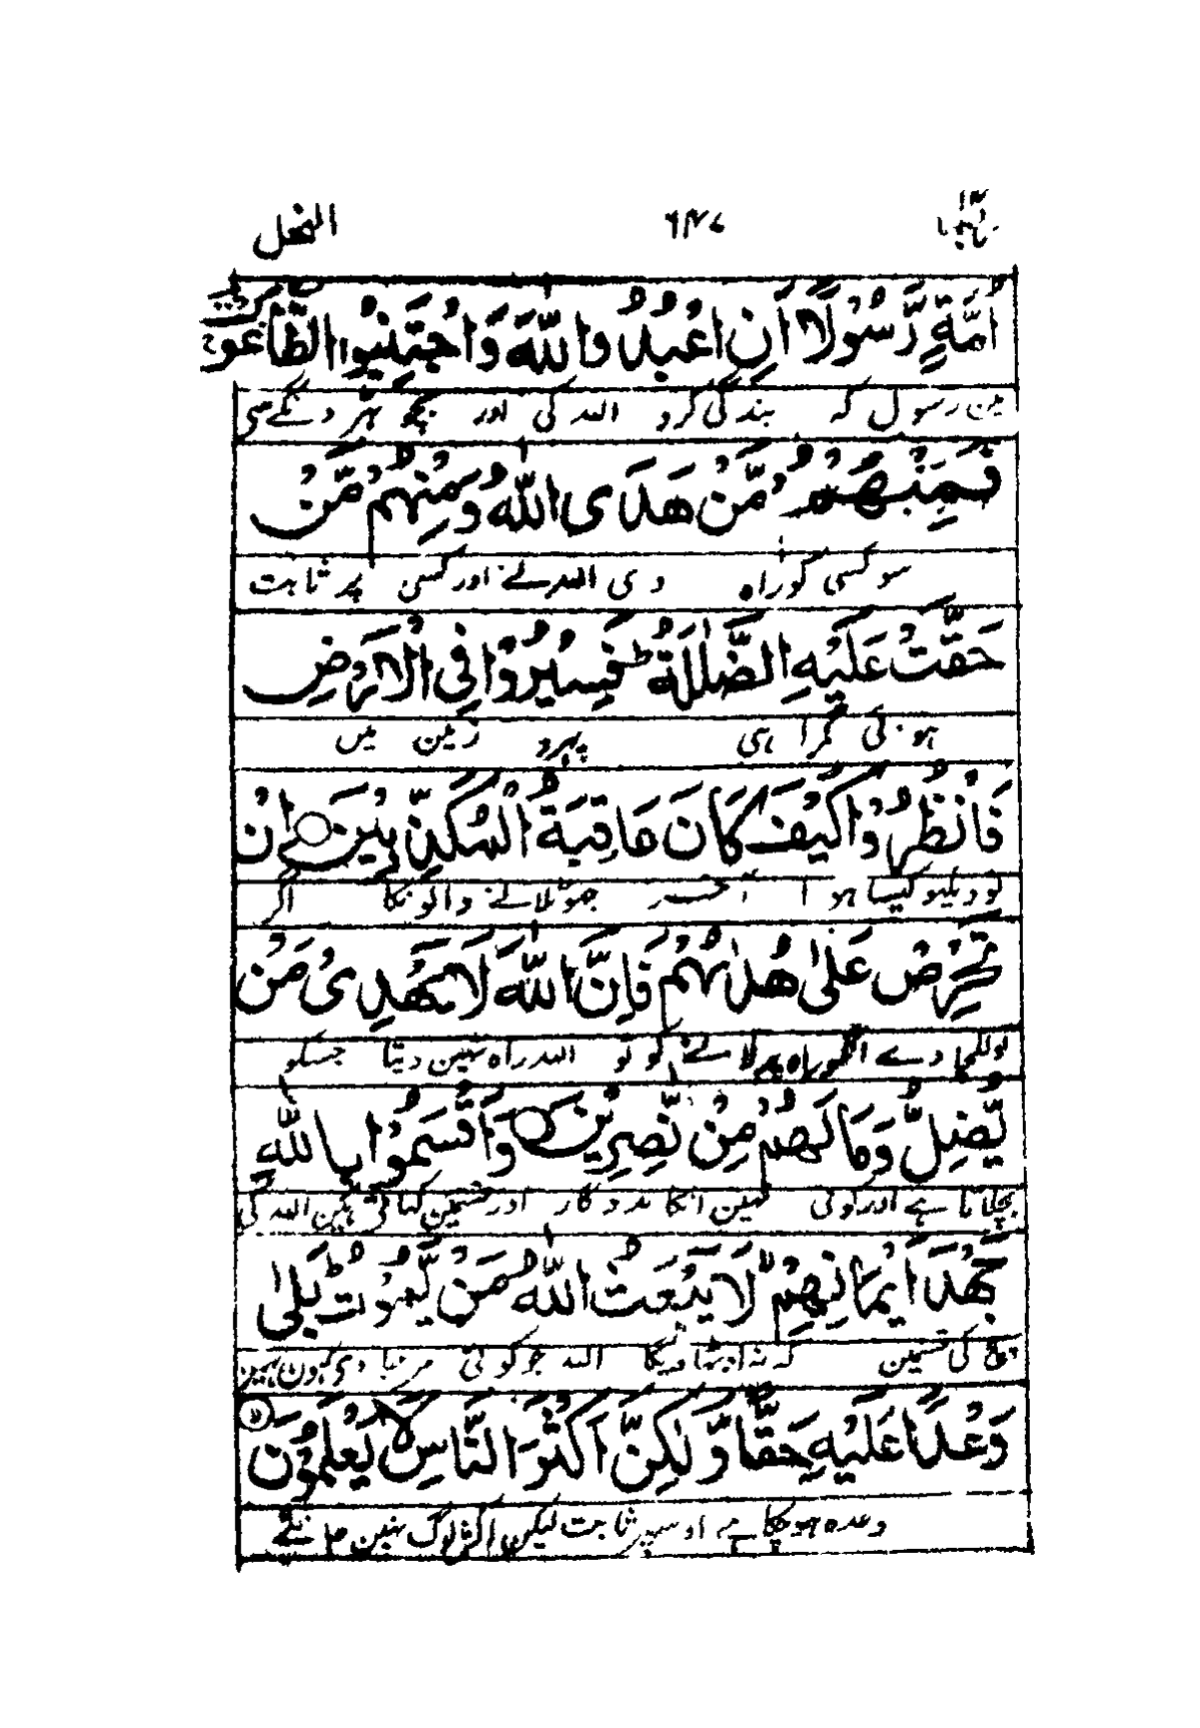 النحل ٦٤٧ ربما ١٤
اُمَّةٍ رَّسُوْلًا اَنِ اعْبُدُوا اللّٰهَ وَاجْتَنِبُوا الطَّاغُوْتَ
مین رسول کہ بندگی کرو اللہ کی اور بچو ہڑدنگے سی
فَمِنْهُمْ مَّنْ هَدَى اللّٰهُ وَمِنْهُمْ مَّنْ
سو کسی کو راہ دی اللہ نے اور کسی پر ثابت
حَقَّتْ عَلَيْهِ الضَّلٰلَةُ ط فَسِيْرُوْا فِى الْاَرْضِ
ہوئی گمراہی پہرو زمین میں
فَانْظُرُوْا كَيْفَ كَانَ عَاقِبَةُ الْمُكَذِّبِيْنَ ○ اِنْ
تو دیکہو کیسا ہوا آخر جھوٹلانے والونکا اگر
تَحْرِصْ عَلٰى هُدٰىهُمْ فَاِنَّ اللّٰهَ لَا يَهْدِىْ مَنْ
تو للچا دے انکو راہ پر لانے کو تو اللہ راہ نہین دیتا جسکو
يُّضِلُّ وَمَا لَهُمْ مِّنْ نّٰصِرِيْنَ ○ وَاَقْسَمُوْا بِاللّٰهِ
بچلاتا ہے اور کوئی نہین انکا مددگار اور قسمین کہاتی ہین اللہ کی
جَهْدَ اَيْمَانِهِمْ لَا يَبْعَثُ اللّٰهُ مَنْ يَّمُوْتُ ط بَلٰى
کی قسمین کہ نہ اوٹہاویگا اللہ جو کوئی مرجاوی کیون نہین
وَعْدًا عَلَيْهِ حَقًّا وَّلٰكِنَّ اَكْثَرَ النَّاسِ لَا يَعْلَمُوْنَ
وعدہ ہوچکا ہے اوسپر ثابت لیکن اکثر لوگ نہین جانتے